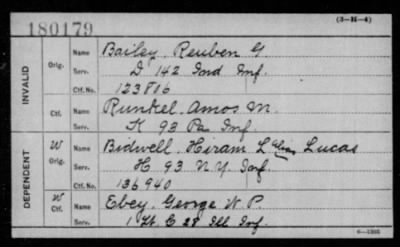 (3—H—4)
180179
INVALID
Orig. Name Bailey, Reuben G
Serv. D 142 Ind Inf.
Ctf. No. 123816
Ctf. Name Runkel, Amos M.
Serv. K 93 Pa Inf.
DEPENDENT
W Orig. Name Bidwell, Hiram L alias Lucas
Serv. H 93 N.Y. Inf.
Ctf. No. 136940
W Ctf. Name Ebey, George W. P.
Serv. 1 Lt. E 28 Ill Inf.
6—1586